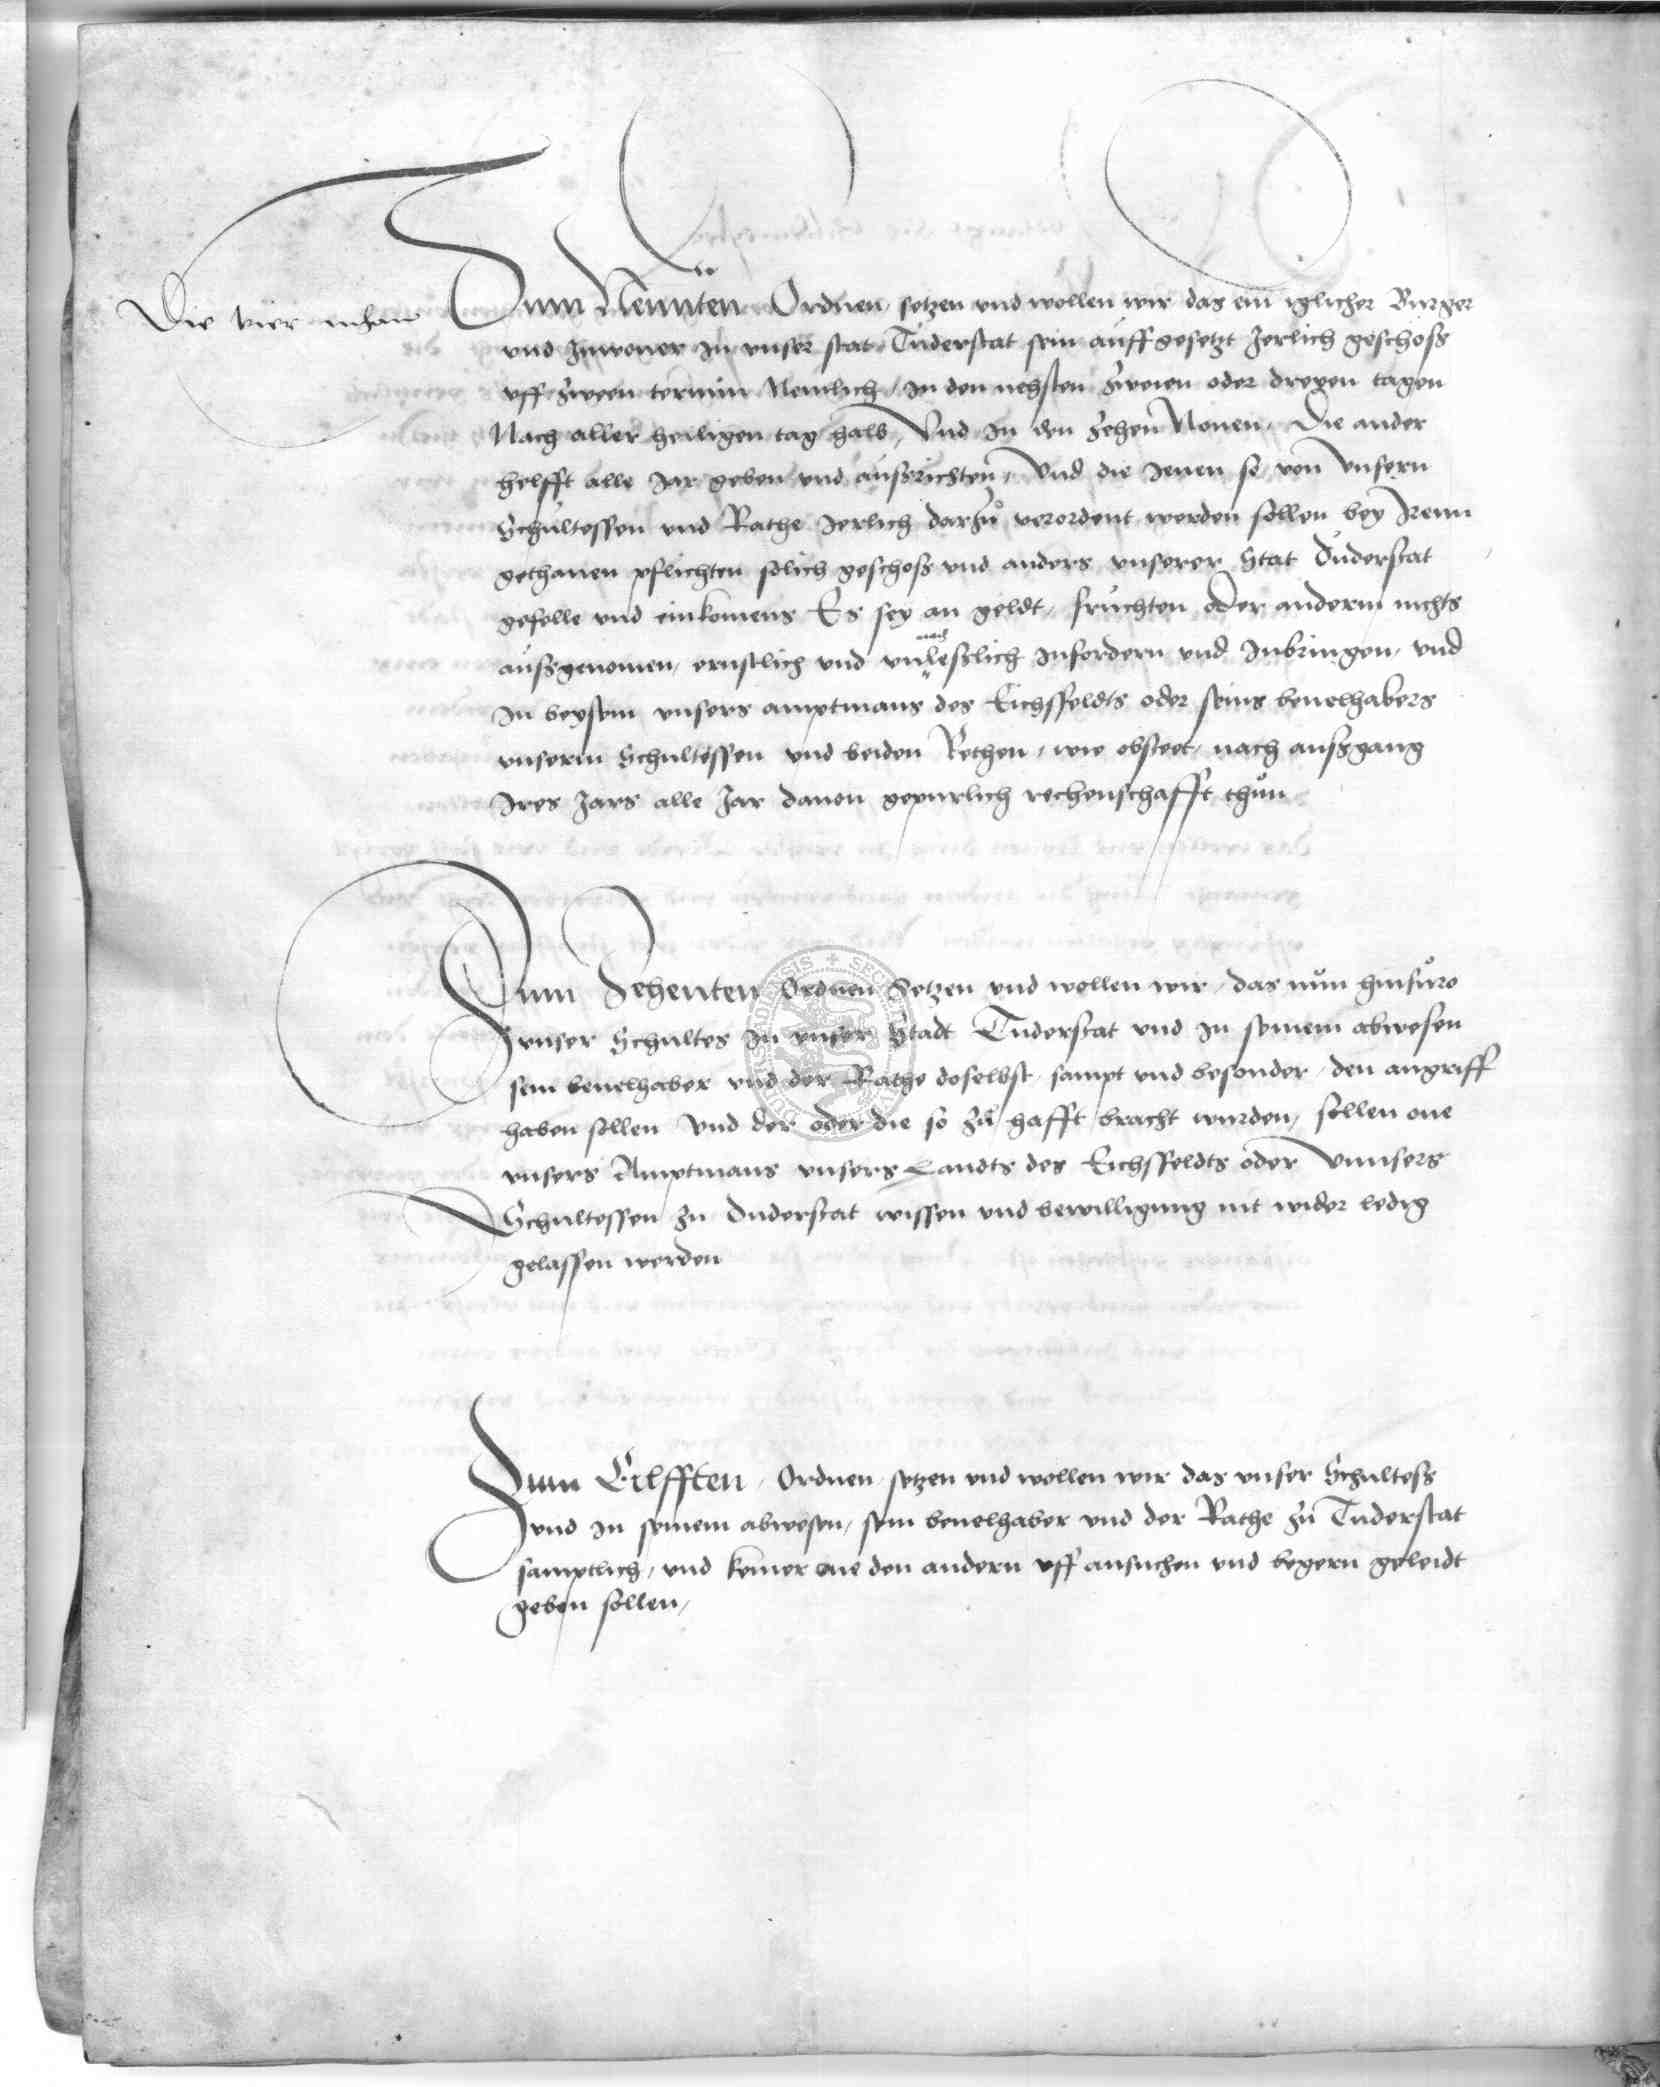 Die vier mhan
Zum Neunten Ordnen, setzen und wollen wir das ein iglicher Burger
und Inwoner in unser stat Tuderstat sein auffgesetzt Jerlich geschoß
uff zween termin Nemlich, in den nehsten zweien oder dreyen tagen
Nach aller heiligen tag halb, Und in den zehen Nonen, Die ander
helfft alle Jar geben und außrichten, Und die Jenen so von unsern
Schultessen und Rathe Jerlich darzů verordent werden sollen bey Irenn
gethanen pflichten solich geschoß und anders unserer Stat Duderstat
gefelle und einkomens Es sey an geldt, fruchten oder anderm nichts
außgenomen, ernstlich und unnachleßlich infordern und Inbringen, und
In beysein unsers amptmans des Eichsfeldts oder seins bevelhabers
unserm Schultessen und beiden Rethen, wie obsteet, nach außgang
Ires Jars alle Jar davon gepurlich rechenschafft thůn
Zum Zehenten Ordnen Setzen und wollen wir, das nůn hinfůro
unser Schultes in unser Stadt Tuderstat und in seinem abwesen
sein bevelhaber und der Rathe doselbst, sampt und besonder, den angriff
haben sollen Und der oder die so zů hafft bracht wurden, sollen one
unsers Amptmans unsers Landts des Eichsfeldts oder Unnsers
Schultessen zu Duderstat wissen und bewilligung nit wider ledig
gelassen werden
Zum Eilfften, Ordnen, setzen und wollen wir das unser Schultess
und in seinem abwesen, sein bevelhaber und der Rathe zů Tuderstat
samptlich, und keiner one den andern uff ansuchen und begern geleidt
geben sollen,